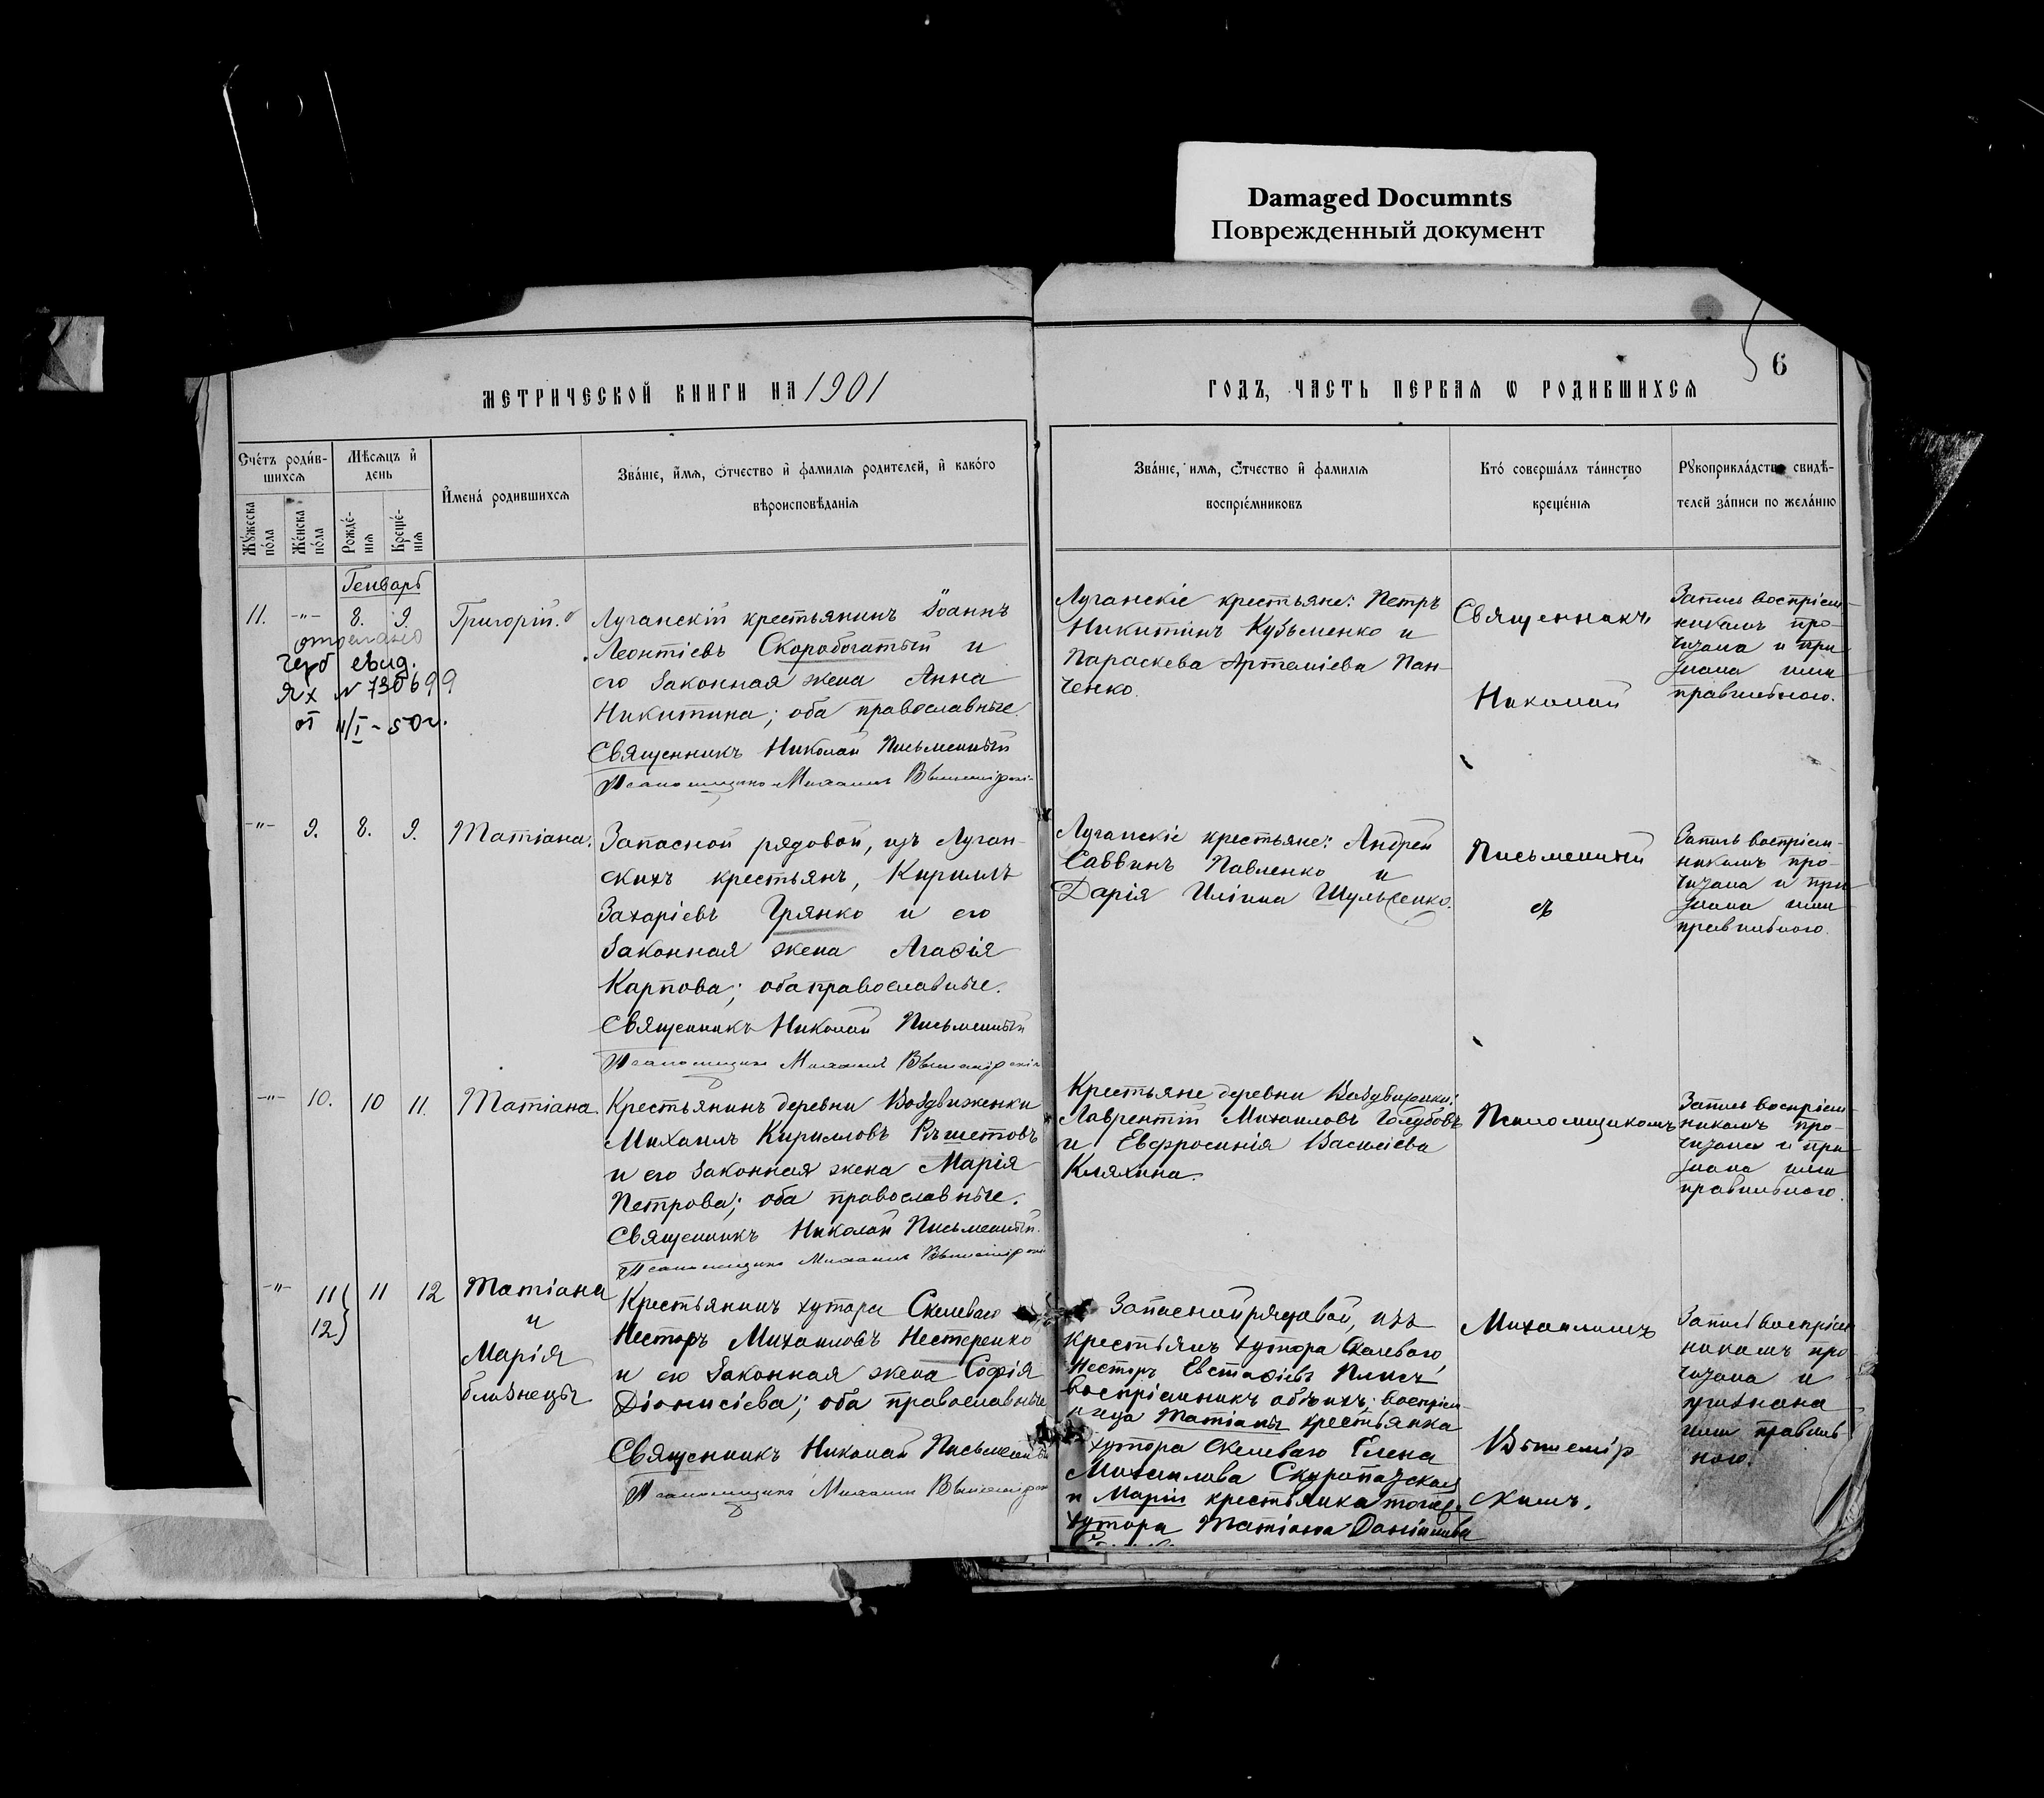 Damaged Documnts
Поврежденный документ
6
МЕТРИЧЕСКОЙ КНИГИ НА 1901
ГОДЪ, ЧАСТЬ ПЕРВАЯ Ѡ РОДИВШИХСЯ
Счéтъ роди́в-
шихся
Мѣ́сяцъ и҆
день
Му́жеска
по́ла
Же́нска
по́ла
Рожде́-
нія
Креще́-
нія
И҆мена́ родившихся
Зва́ніе, и҆́мя, ѻ҆́тчество и҆ фамилія родителей, и҆ како́го
вѣроисповѣ́данія
Зва́ніе, имя, ѻ҆́тчество и҆ фамилія
воспріе́мниковъ
Кто́ соверша́лъ та́инство
креще́нія
Рꙋкоприкла́дство свидѣ́-
телей за́писи по жела́нію
Генварь
11. -"- 8. 9. Григорій.
Луганскій крестьянинъ Іоаннъ
Леонтіевъ Скоробогатый и
его законная жена Анна
Никитина; оба православные.
Священникъ Николай Письменный
Псаломщикъ Михаилъ Вышемірскій
отослано
герб свид.
ЯХ № 730699
от 11/I - 50 г.
Луганскіе крестьяне: Петръ
Никитинъ Кузьменко и
Параскева Артеміева Пан-
ченко.
Священникъ
Николай
Запись воспріем-
никамъ про-
читана и при
знана ими
правильного.
-"- 9. 8. 9. Татіана.
Запасной рядовой, изъ Луган-
скихъ крестьянъ, Кириллъ
Захаріевъ Грянко и его
законная жена Агафія
Карпова; оба православные.
Священникъ Николай Письменный
Псаломщикъ Михаилъ Вышемірскій
Луганскіе крестьяне: Андрей
Саввинъ Павленко и
Дарія Иліина Шульженко.
Письменный
съ
Запись воспріем-
никамъ про-
читана и при
знана ими
правильного.
-"- 10. 10 11. Татіана.
Крестьянинъ деревни Воздвиженки
Михаилъ Кирилловъ Рѣшетовъ
и его законная жена Марія
Петрова; оба православные.
Священникъ Николай Письменный.
Псаломщикъ Михаилъ Вышемірскій
Крестьяне деревни Воздвиженки:
Лаврентій Михаиловъ Голубовъ
и Евфросинія Василіева
Кляхина.
Псаломщикомъ
Запись воспріем-
никамъ про-
читана и при
знана ими
правильного.
-"- 11 12 } 11 12 Татіана
и
Марія
близнецы
Крестьянинъ хутора Скелеваго
Несторъ Михаиловъ Нестеренко
и его законная жена Софія
Діонисіева; оба православные
Священникъ Николай Письменный
Псаломщикъ Михаилъ Вышемірскій
Запасной рядовой, изъ
крестьянъ хутора Скелеваго,
Несторъ Евстафіевъ
воспріемникъ обѣихъ; воспріем-
ница Татіаны крестьянка
хутора Скелеваго Елена
Михаилова Скоропадская
и Маріи крестьянка тогоже
хутора Татіана Даніилова
Михаиломъ
Вышемір-
скимъ.
Запись воспріем
никамъ про
читана и
признана
ими правиль
ного.